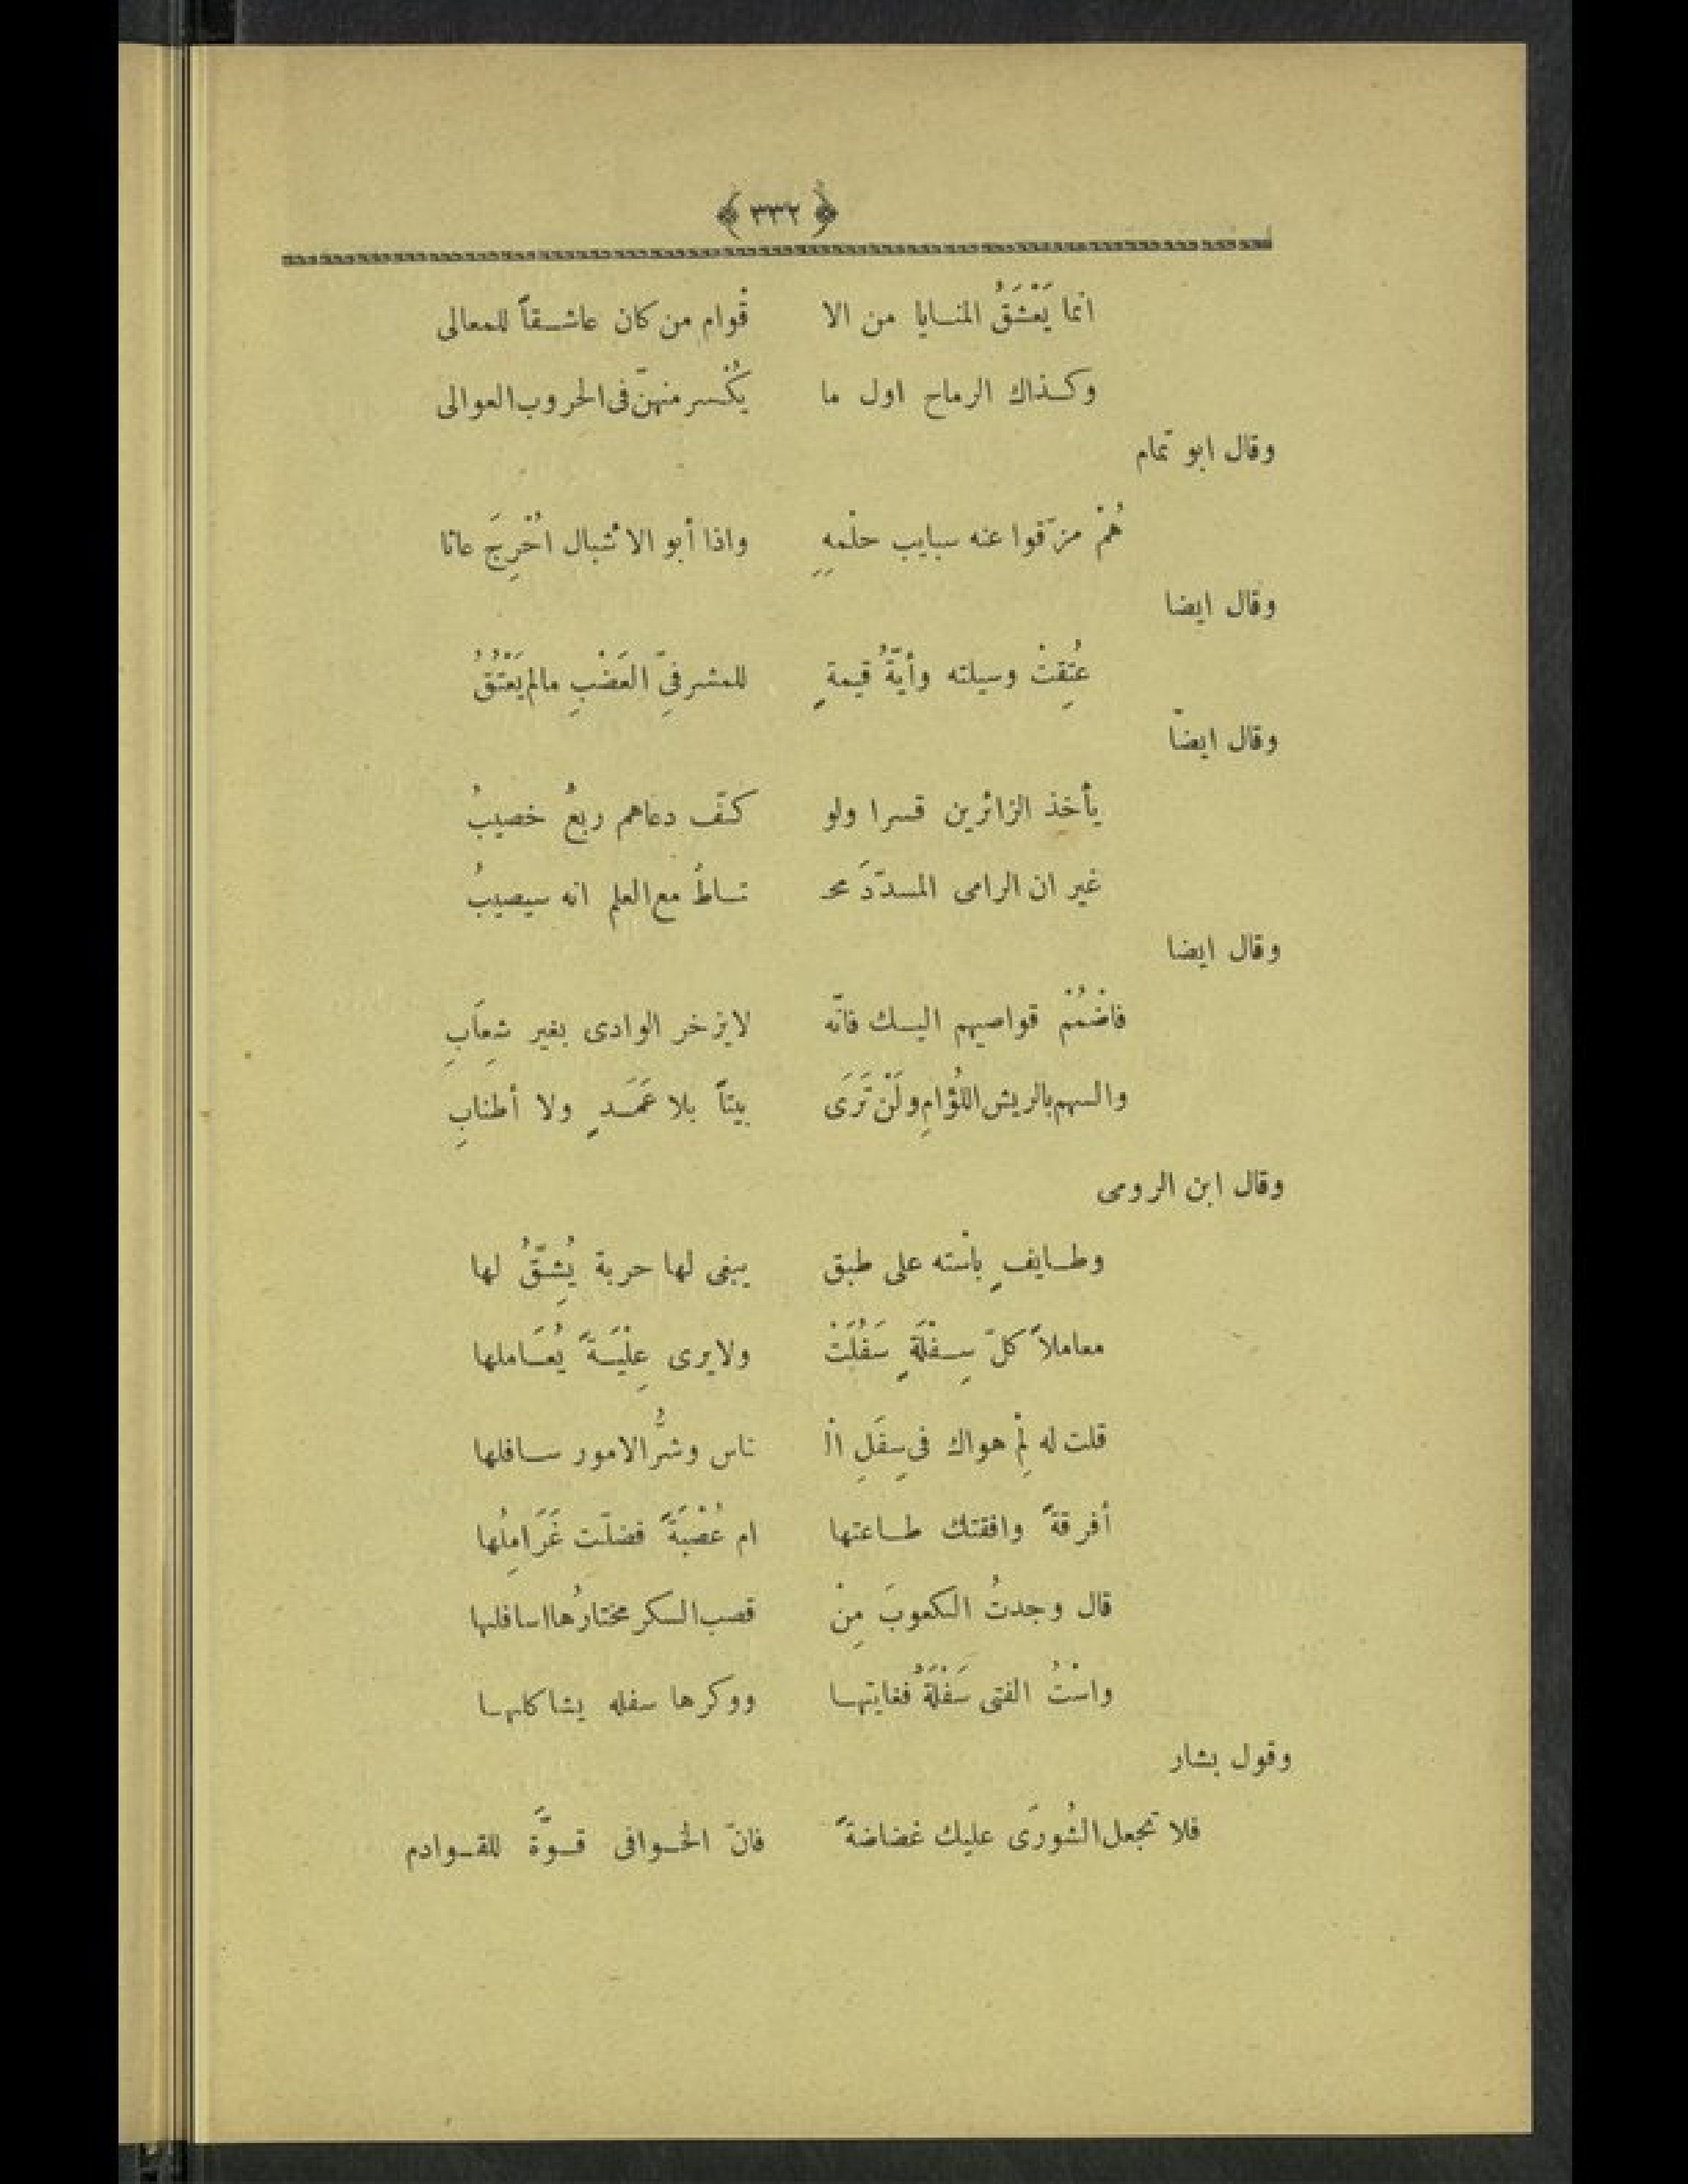 ﴿ ٣٣٢ ﴾
انما يَعْشَقُ المنــايا من الا قْوام من كان عاشــقاً للمعالى
وكــذاك الرماح اول ما يُكْسر منهنّ فى الحروب العوالى
وقال ابو تمام
هُمْ مزّقوا عنه سبايب حلْمِهِ واذا أبو الاشبال اُخْرِجَ عاثا
وقال ايضا
عُتِقتْ وسيلته وأيّةُ قيمةٍ للمشرفىِّ العَضْبِ مالم يَعْتُقُ
وقال ايضاً
يأخذ الزائرين قسرا ولو كنّف دعاهم ربعُ خصيبُ
غير ان الرامى المسدّدَ محـ تــاطُ مع العلم انه سيصيبُ
وقال ايضا
فاضْمُمْ قواصيهم اليــك فانّه لايزخر الوادى بغير شِعاَبِ
والسهم بالريش اللُؤامِ ولَنْ تَرَى بيتاً بلا عَمَــدٍ ولا أطنابِ
وقال ابن الرومى
وطــايفٍ باسْته على طبق يبغى لها حربة يُشِقّقُ لها
معاملاً كلّ سِــفْلَةٍ سَفُلَتْ ولايرى عِلْيَــةً يُعَــاملها
قلت له لِمْ هواك فى سِفَلِ الْ ناس وشرُّ الامور ســافلها
أفرقةً وافقتك طــاعتها ام عُصْبَةً فضلّت غَرَامِلُها
قال وجدتُ الكعوبَ مِنْ قصب السكر مختارُها اسافلها
واسْتُ الفتى سَفْلَةُ فغايتهــا ووكرها سفله يشاكلهــا
وقول بشار
فلا تجعل الشُورَى عليك غضاضةً فانّ الخــوافى قــوّةً للقــوادم